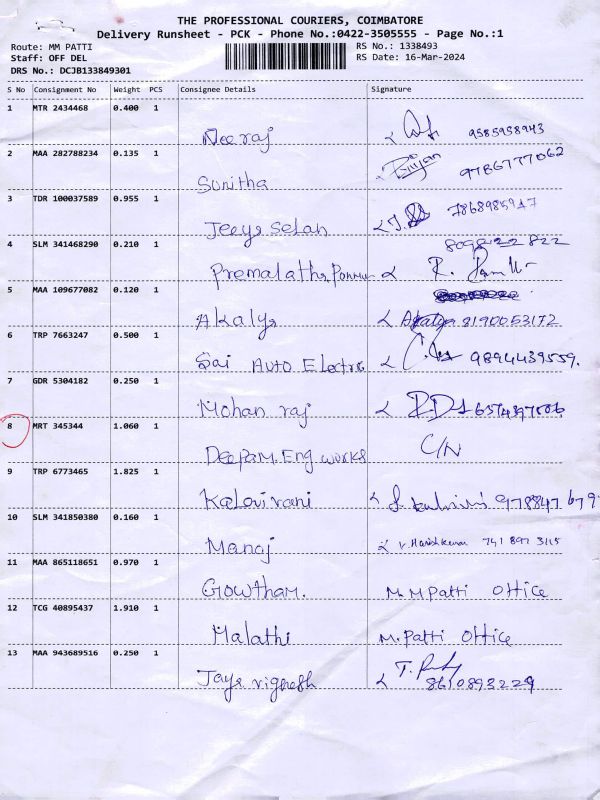 THE PROFESSIONAL COURIERS, COIMBATORE
Delivery Runsheet - PCK - Phone No.:0422-3505555 - Page No.:1
Route: MM PATTI RS No.: 1338493
Staff: OFF DEL RS Date: 16-Mar-2024
DRS No.: DCJB133849301
S No Consignment No Weight PCS Consignee Details Signature
1 MTR 2434468 0.400 1
Neeraj 9585958943
2 MAA 282788234 0.135 1
Sunitha 9786777062
3 TDR 100037589 0.955 1
Selan 7868985947
4 SLM 341468290 0.210 1 8098222822
Premalatha
5 MAA 109677082 0.120 1
Akalya Akalya 8190053172
6 TRP 7663247 0.500 1
Sai Auto Electric 9894439559.
7 GDR 5304182 0.250 1
Mohan raj
8 MRT 345344 1.060 1 C/N
Deepam. Eng works
9 TRP 6773465 1.825 1
978847679
10 SLM 341850380 0.160 1
Manoj V. Harish Kumar 741 897 3115
11 MAA 865118651 0.970 1
Gowtham. M.M Patti Office
12 TCG 40895437 1.910 1
Malathi M. Patti Office
13 MAA 943689516 0.250 1
Jaya vignesh 8610893229